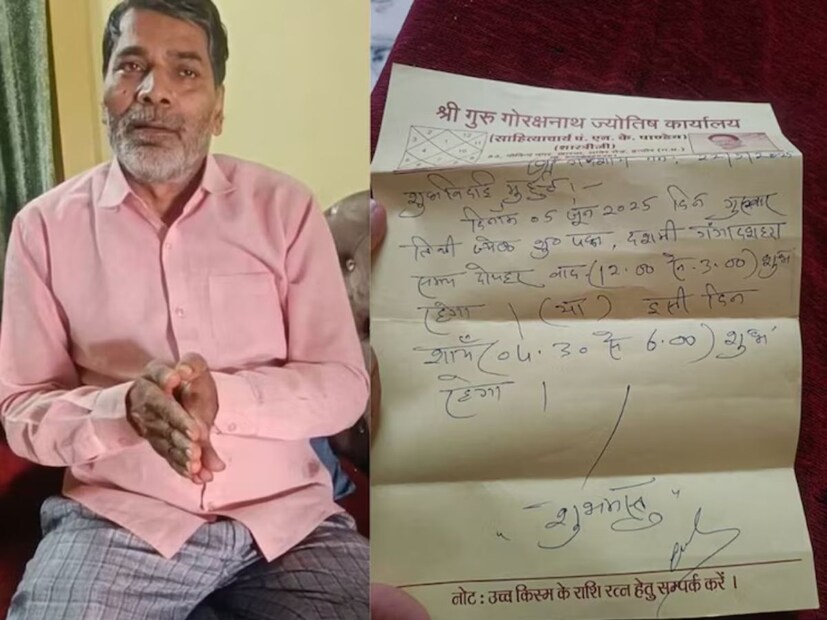 श्री गुरु गोरक्षनाथ ज्योतिष कार्यालय
(साहित्याचार्य पं. एन. के. पाण्डेय)
(शास्त्रीजी)
शुभ विदाई मुहूर्त ।-
दिनांक 05 जून 2025 दिन गुरुवार
तिथी ज्येष्ठ शुक्ल पक्ष, दशमी गंगादशहरा
समय दोपहर बाद-(12.00 से 3.00) शुभ
रहेगा । (या) इसी दिन
शाम (04.30 से 6.00) शुभ
रहेगा ।
"शुभमस्तु"
नोट : उच्च किस्म के राशि रत्न हेतु सम्पर्क करें ।